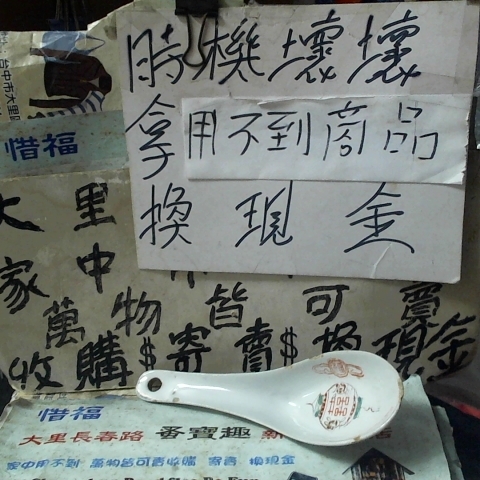 台中市大里
惜福
時機壞壞
拿用不到商品
換現金
大里
家中
可賣
萬物皆
收購$寄賣$換現金
囍
惜福
大里長春路 蚤寶趣
家中用不到 萬物皆可賣收購 寄賣 換現金